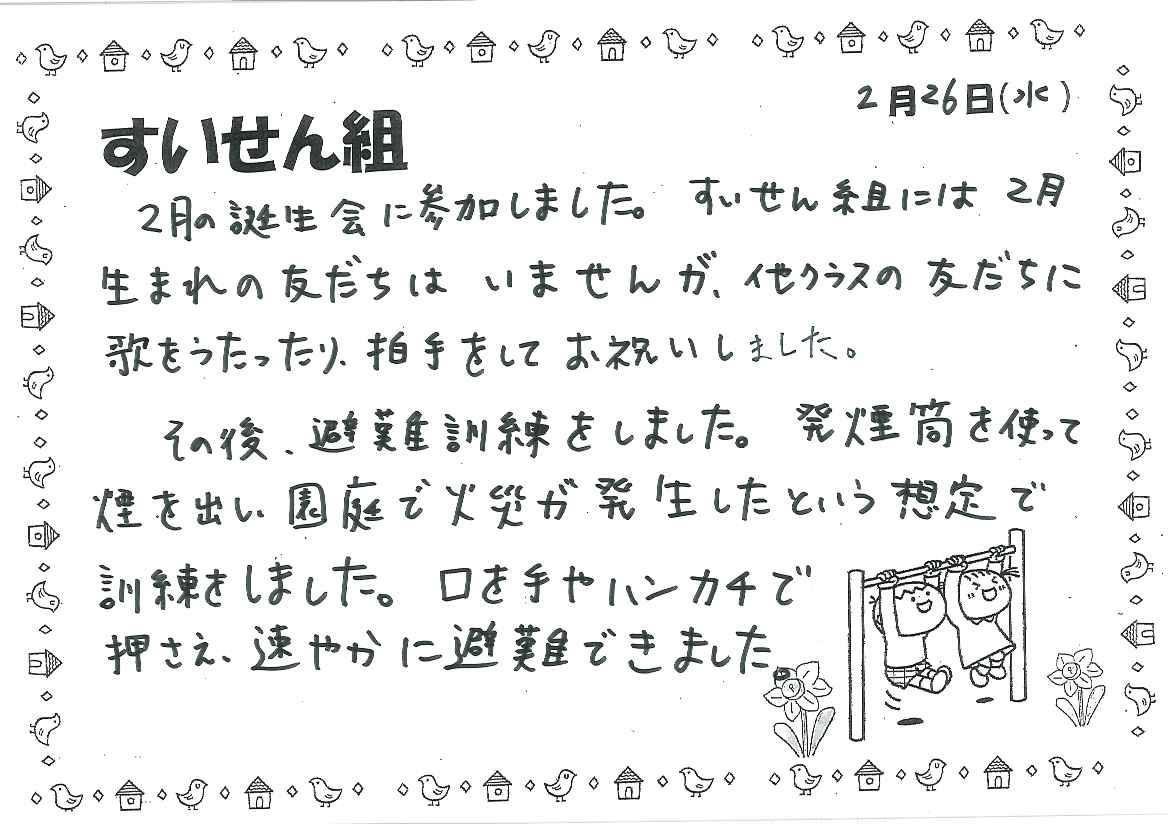 2月26日(水)
すいせん組
2月の誕生会に参加しました。すいせん組には2月
生まれの友だちはいませんが、他クラスの友だちに
歌をうたったり、拍手をしてお祝いしました。
その後、避難訓練をしました。発煙筒を使って
煙を出し、園庭で火災が発生したという想定で
訓練をしました。口を手やハンカチで
押さえ、速やかに避難できました。